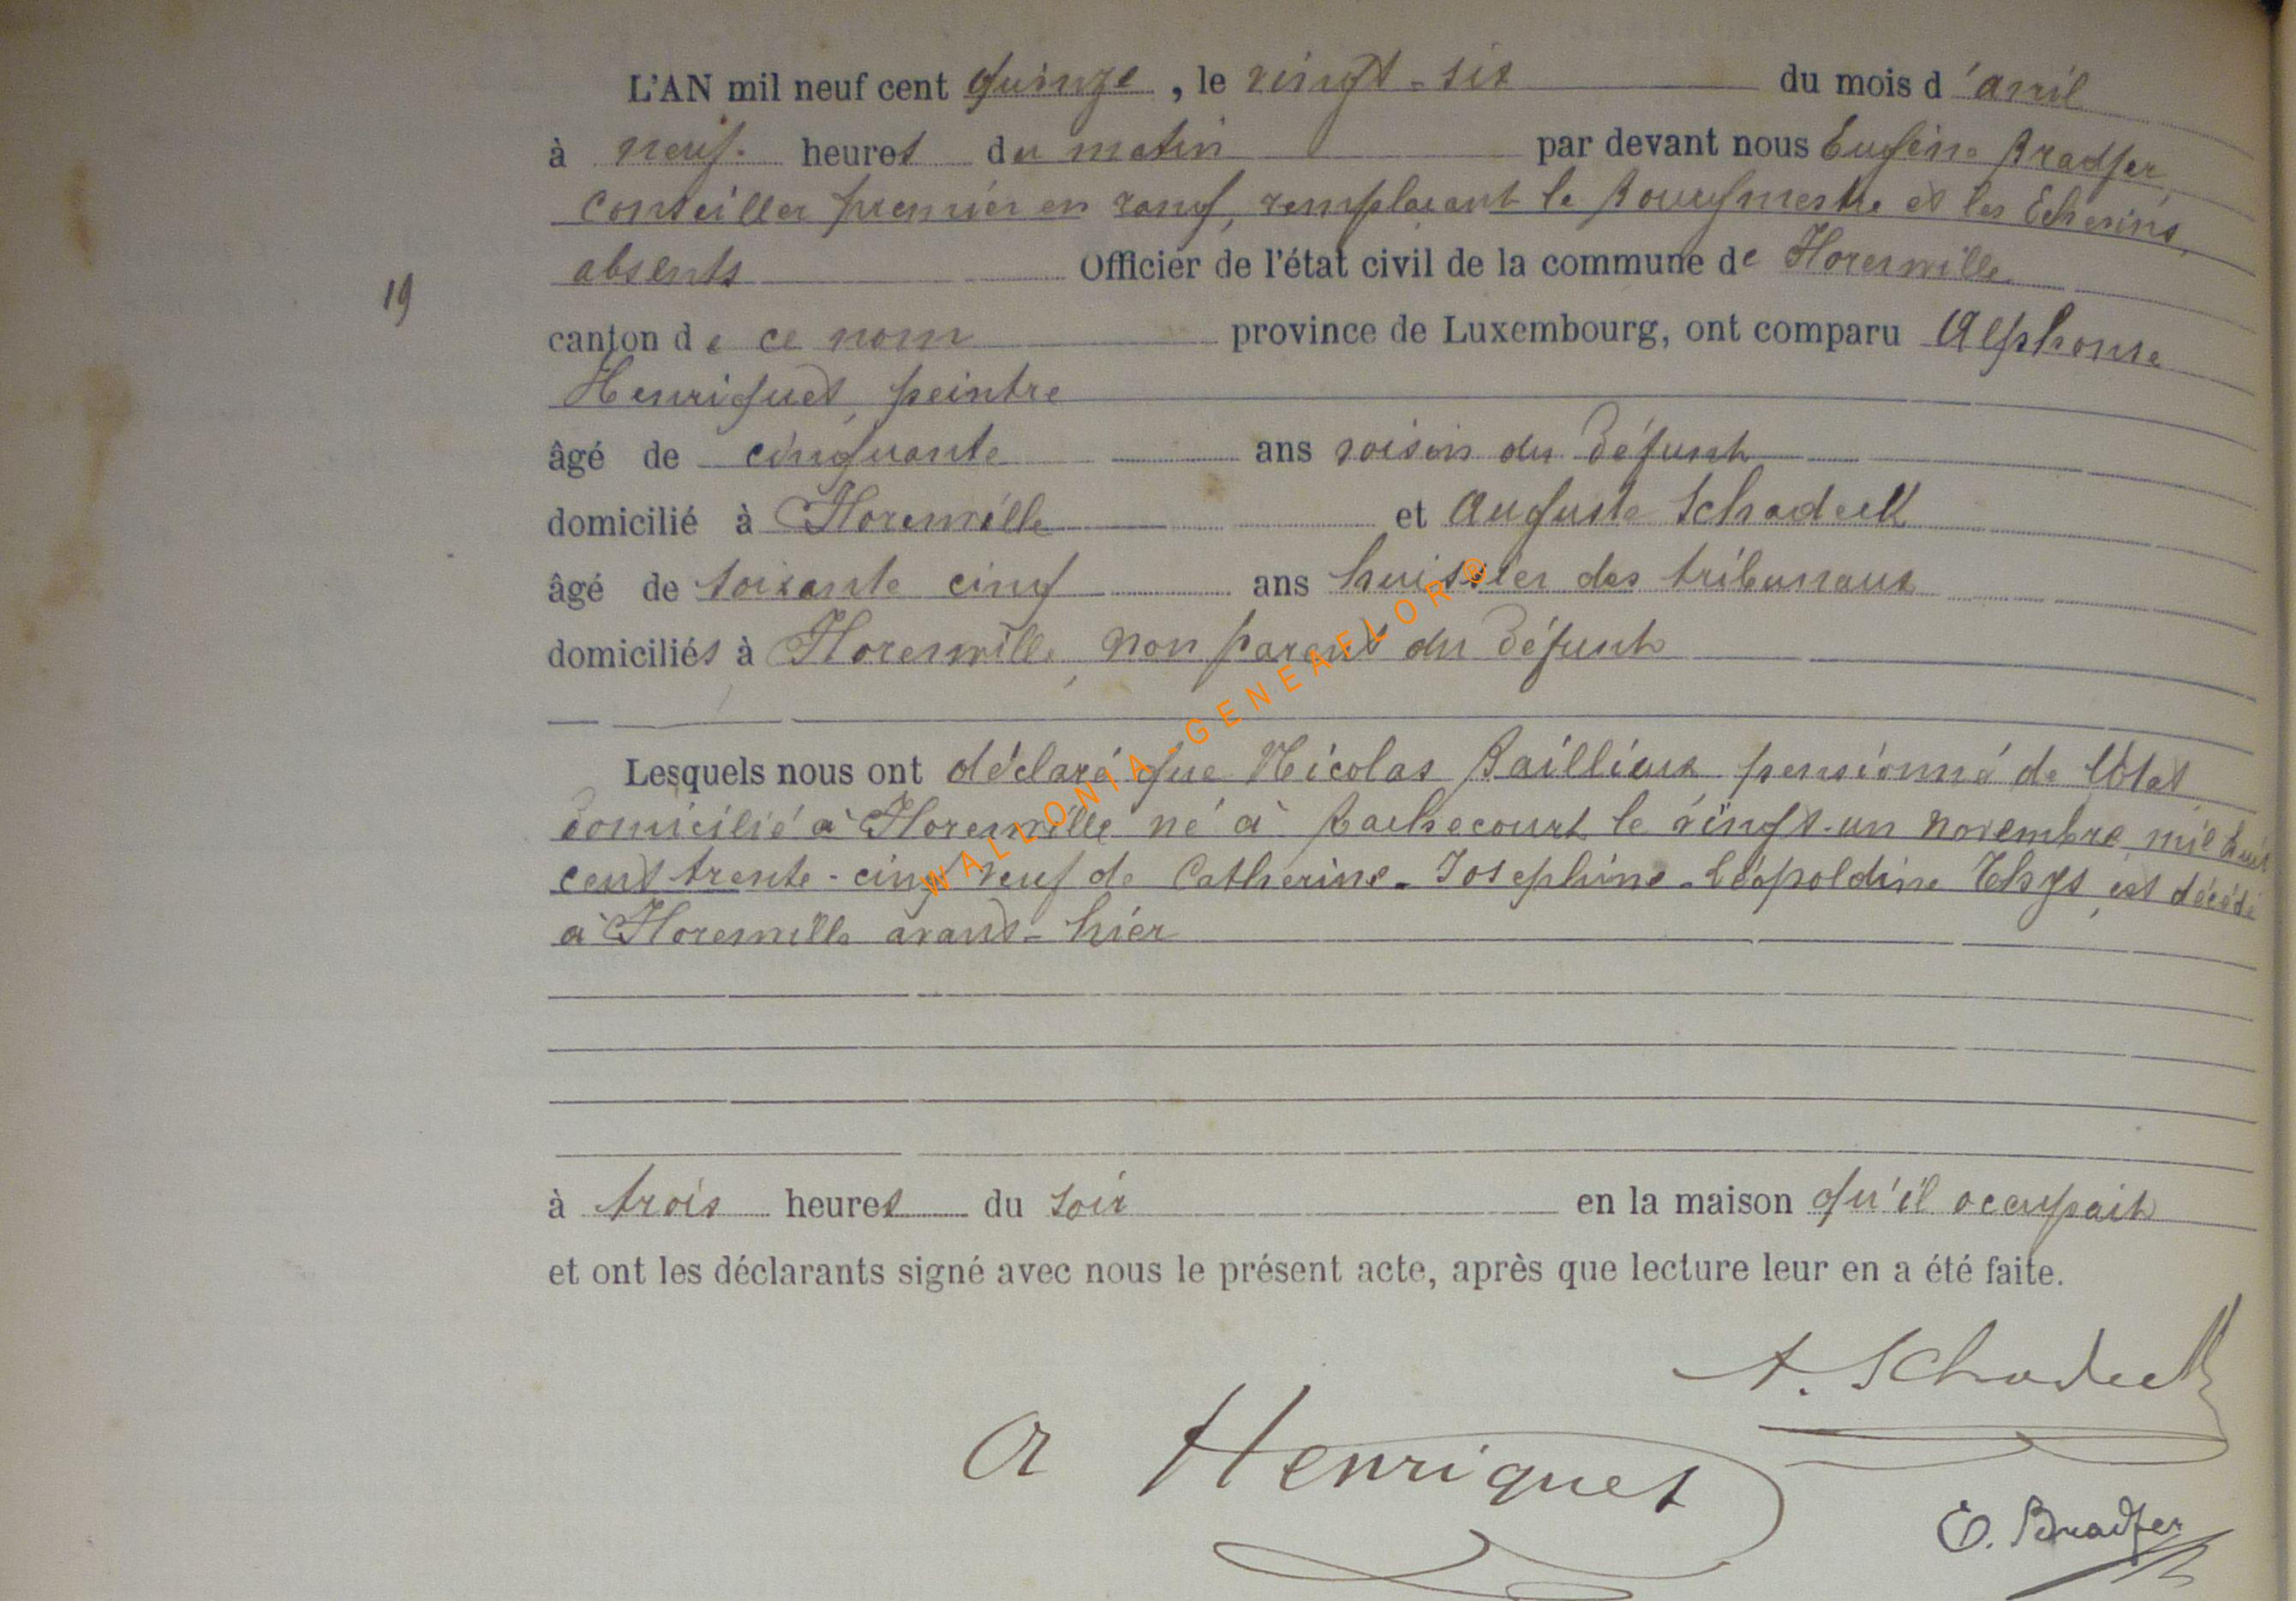 L'AN mil neuf cent quinze, le vingt-six du mois d'avril
à neuf heures du matin par devant nous Eugène Bradfer,
conseiller premier en rang, remplaçant le Bourgmestre et les Echevins,
absents Officier de l'état civil de la commune de Florenville
19
canton de ce nom province de Luxembourg, ont comparu Alphonse
Henriquet, peintre
âgé de cinquante ans voisin du défunt
domicilié à Florenville et Auguste Schadeck
âgé de soixante cinq ans huissier des tribunaux
domiciliés à Florenville, non parent du défunt
Lesquels nous ont déclaré que Nicolas Baillieux, pensionné de l'état,
domicilié à Florenville né à Rachecourt le vingt-un novembre mil huit
cent trente-cinq veuf de Catherine-Josephine-Léopoldine Thys, est décédé
à Florenville avant-hier
à trois heures du soir en la maison qu'il occupait
et ont les déclarants signé avec nous le présent acte, après que lecture leur en a été faite.
A. Schadeck
A Henriquet
E. Bradfer
WALLONIA-GENEAFLOR®